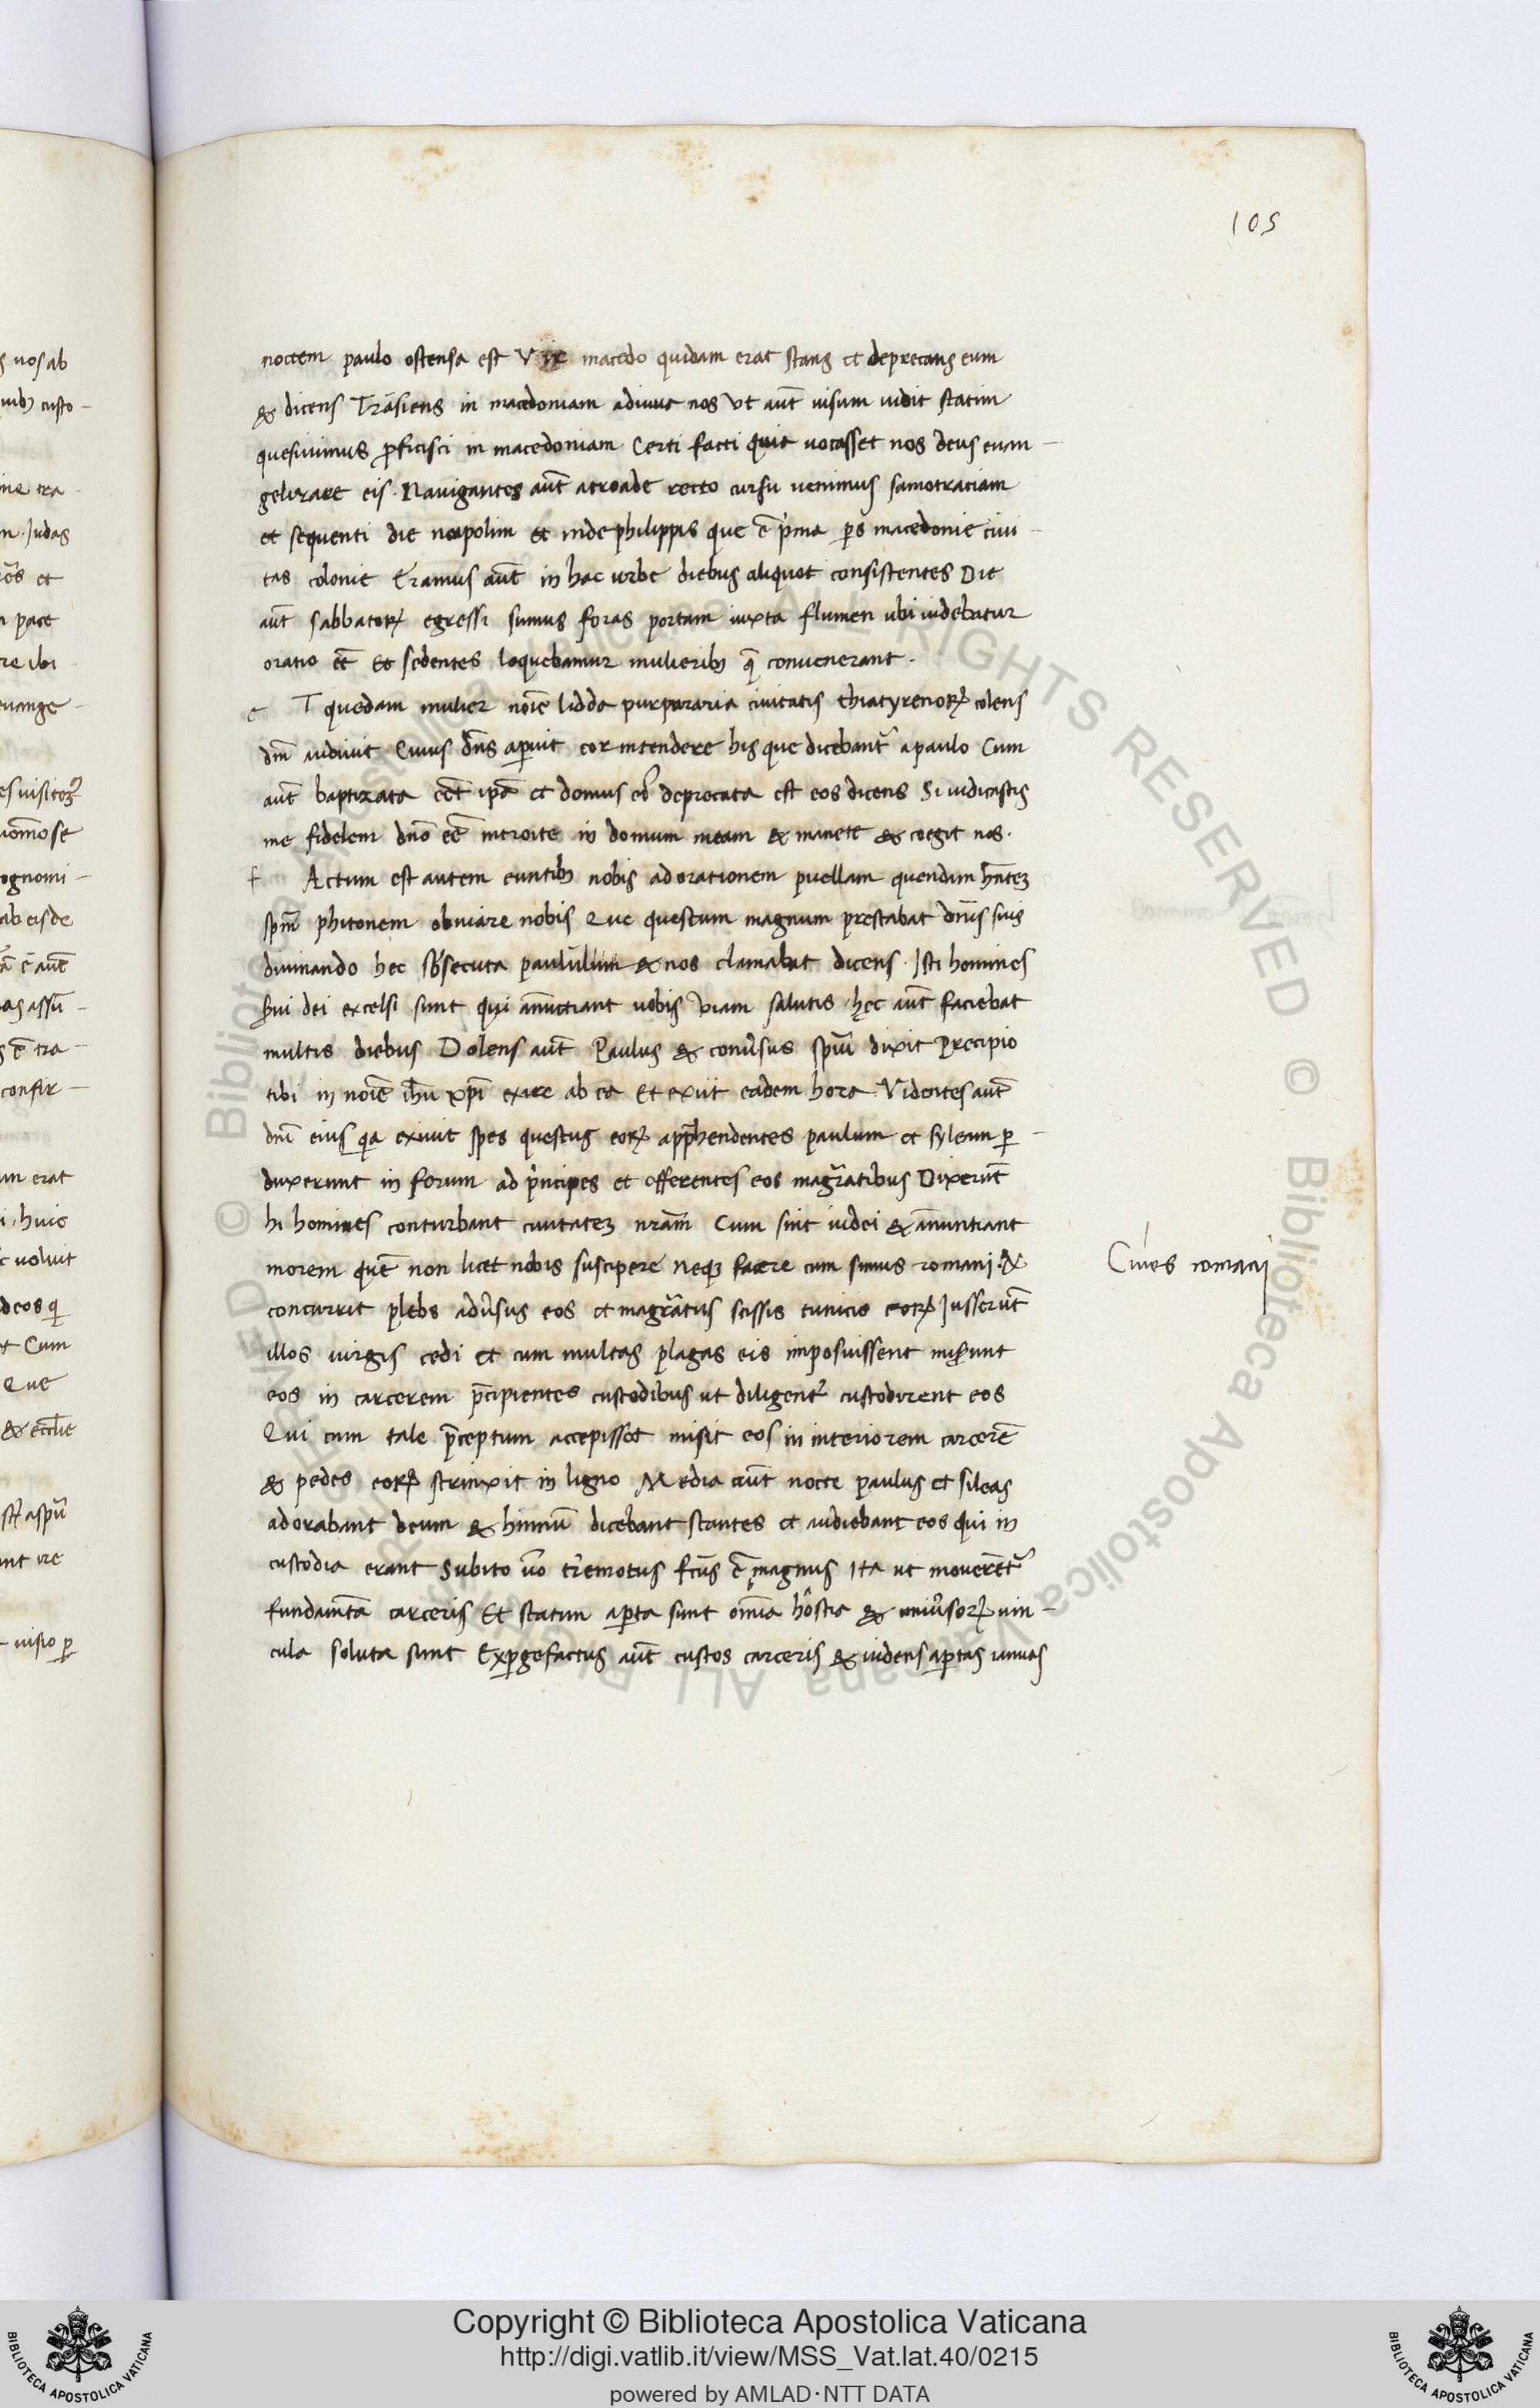 105
noctem paulo ostensa est Vir macedo quidam erat stans et deprecans eum
& dicens Trāsiens in macedoniam adiuua nos Vt aut̄ uisum uidit statim
quesiuimus p̄ficisci in macedoniam Certi facti quia uocasset nos deus euan-
gelizare eis. Nauigantes aut̄ atroade recto cursu uenimus samotraciam
et sequenti die neapolim et inde philippis que ē p̄ma ps macedonie ciui-
tas colonie Eramus aut̄ in hac urbe diebus aliquot consistentes Die
aut̄ sabbatoꝝ egressi sumus foras portam iuxta flumen ubi uidebatur
oratio eē Et sedentes loquebamur mulieribꝫ q̄ conuenerant.
e T quedam mulier noīe lidda purpuraria ciuitatis thiatyrenoꝝ colens
dm̄ audiuit Cuius dn̄s aꝑuit cor intendere his que dicebant᷑ apaulo Cum
aut̄ baptizata eēt ip̄a et domus ei᷑ deprecata est eos dicens Si iudicastis
me fidelem dn̄o eē introite in domum meam & manete & coegit nos.
f Actum est autem euntibꝫ nobis ad orationem puellam quendam hn̄teꝫ
spm̄ phitonem obuiare nobis Que questum magnum prestabat dn̄is suis
diuinando hec sb᷑secuta paululum & nos clamabat dicens. Isti homines
s̄ui dei excelsi sunt qui an̄untiant uobis uiam salutis. hęc aut̄ faciebat
multis diebus Dolens aut̄ Paulus & conu᷑sus spūi dixit Precipio
tibi in noīe ih̄u xp̄i exire ab ea Et exiit eadem hora Videntes aut̄
dn̄i eius qa exiuit spes questus eoꝝ app̄hendentes paulum et syleam ꝑ-
duxerunt in forum ad p̄ncipes et offerentes eos magr̄atibus Dixerūt
hi homines conturbant ciuitateꝫ nr̄am Cum sint iudei & an̄untiant
morem quē non licet nobis suscipere neqꝫ facere cum simus romani. &
concurrit plebs adu᷑sus eos et magr̄atus scissis tunicis eoꝝ Iusserūt
illos uirgis cedi et cum multas plagas eis imposuissent mis᷑unt
eos in carcerem p̄cipientes custodibus ut diligent᷑ custodirent eos
Qui cum tale p̄ceptum accepisset misit eos in interiorem carcerē
& pedes eoꝝ strinxit in ligno Media aut̄ nocte paulus et sileas
adorabant deum & himnū dicebant stantes et audiebant eos qui in
custodia erant Subito u̅o t᷑remotus fc̄us ē magnus Ita ut mouerēt᷑
fundam̄ta carceris Et statim aꝑta sunt om̄ia hostia & uniu᷑soꝝ uin-
cula soluta sunt Exꝑgefactus aut̄ custos carceris & uidens aꝑtas ianuas
Ciues romanj
Copyright © Biblioteca Apostolica Vaticana
http://digi.vatlib.it/view/MSS_Vat.lat.40/0215
powered by AMLAD·NTT DATA